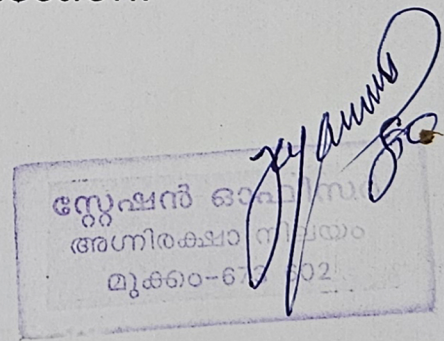 സ്റ്റേഷൻ ഓഫീസർ
അഗ്നിരക്ഷാ നിലയം
മുക്കം-673 602